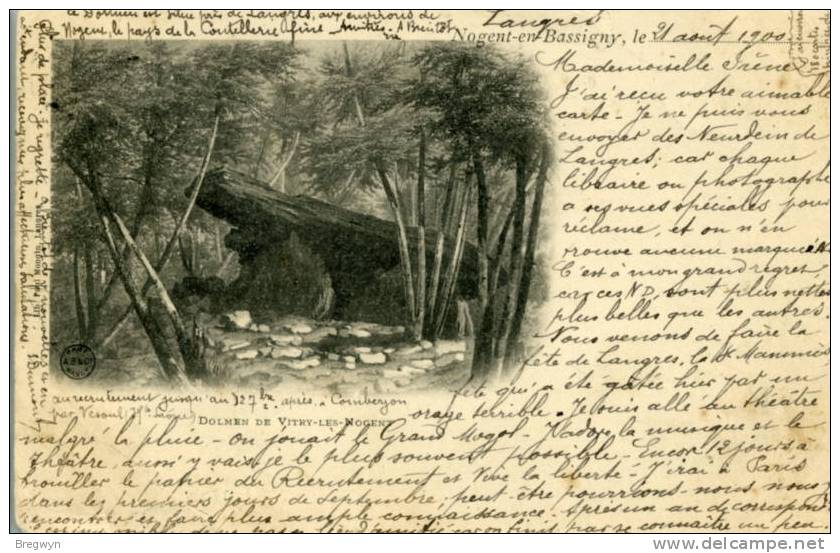 ce Dolmen est situé près de Langres, aux environs de
Nogent, le pays de la Coutellerie fine. Amitiés. A Bientôt
Langres
Nogent-en-Bassigny, le 21 août 1900
Mademoiselle Irène
J'ai reçu votre aimable
carte - Je ne puis vous
envoyer des Neurdein de
Langres; car chaque
libraire ou photographe
a ses vues spéciales pour
réclame, et on n'en
trouve aucune marquée N
C'est à mon grand regret,
car ces ND, sont plus nettes
plus belles que les autres.
Nous venons de faire la
fête de Langres, la St Mammès
fête qui a été gâtée hier par un
orage terrible. Je suis allé au théâtre
malgré la pluie - On jouait le Grand Mogol - J'adore la musique et le
Théâtre, aussi y vais je le plus souvent possible - Encor 12 jours à
brouiller le papier du Recrutement et Vive la liberté - J'irai à Paris
dans les premiers jours de Septembre; peut-être pourrions-nous nous
rencontrer et faire plus ample connaissance. Après un an de correspond
se connaître un peu.
au recrutement jusqu'au
après, à Combeaufon
par Vesoul (Hte Saône)
DOLMEN DE VITRY-LES-NOGENT
plus de place je regrette - A Bientôt de vos nouvelles et en
attendant recevez mes plus affectueuses salutations.
Dumont
Bregwyn
www.delcampe.net